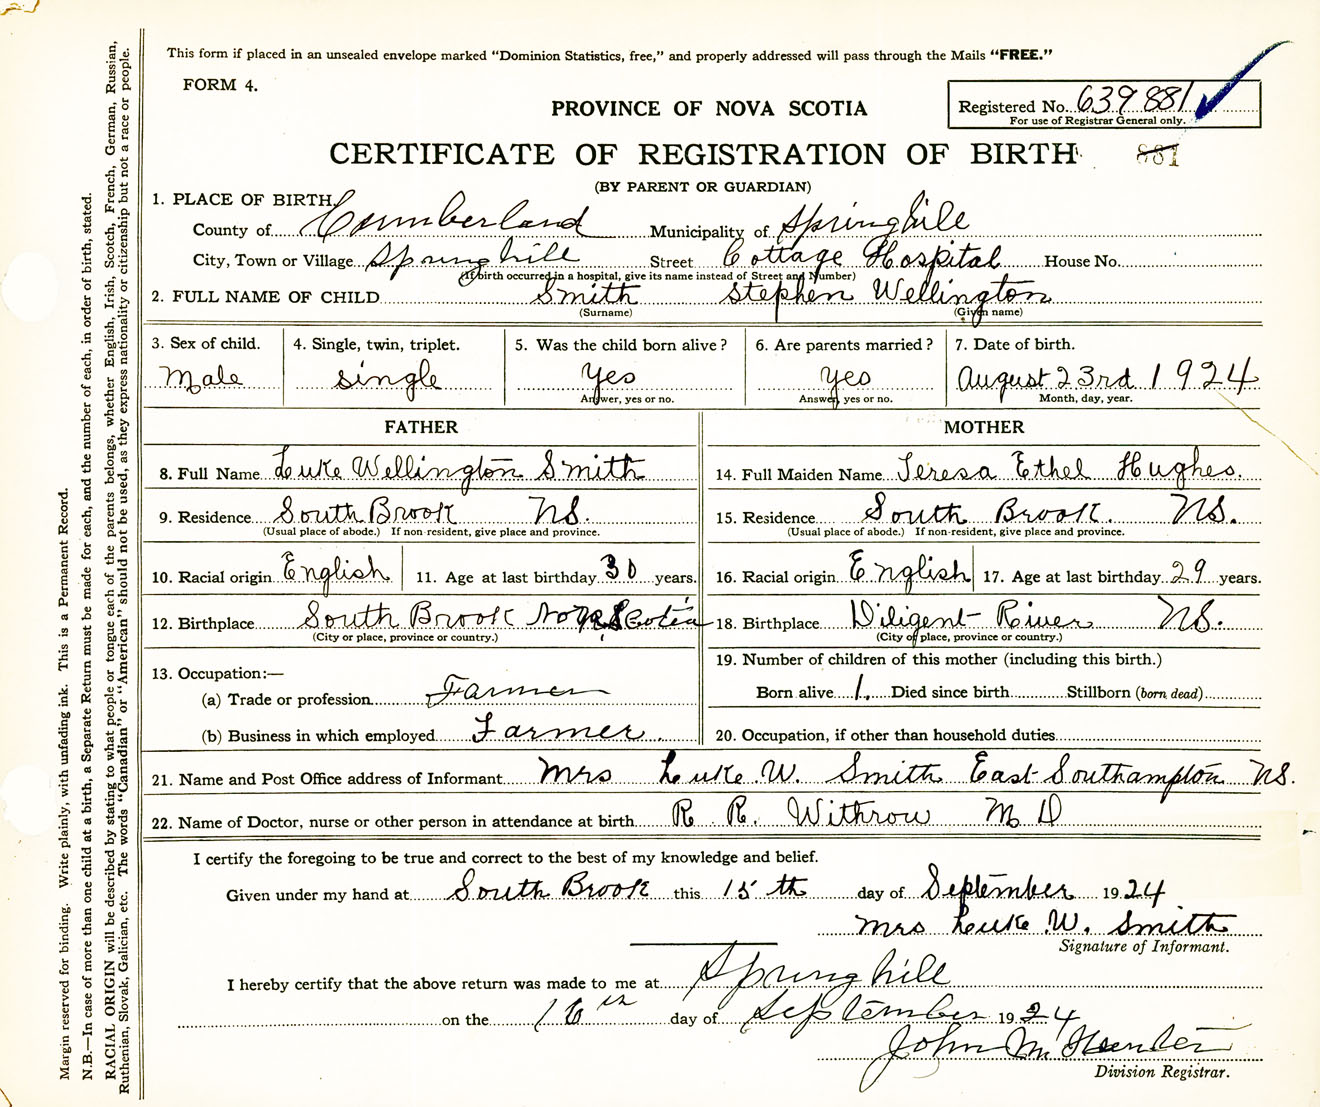 This form if placed in an unsealed envelope marked “Dominion Statistics, free,” and properly addressed will pass through the Mails “FREE.”
FORM 4.
Registered No. 639881
For use of Registrar General only.
PROVINCE OF NOVA SCOTIA
CERTIFICATE OF REGISTRATION OF BIRTH
881
(BY PARENT OR GUARDIAN)
1. PLACE OF BIRTH
County of Cumberland Municipality of Springhill
City, Town or Village Springhill Street Cottage Hospital House No.
(If birth occurred in a hospital, give its name instead of Street and Number)
2. FULL NAME OF CHILD Smith Stephen Wellington
(Surname) (Given name)
3. Sex of child. 4. Single, twin, triplet. 5. Was the child born alive? 6. Are parents married? 7. Date of birth.
Male single Yes Yes August 23rd 1924
Answer, yes or no. Answer, yes or no. Month, day, year.
FATHER MOTHER
8. Full Name Luke Wellington Smith 14. Full Maiden Name Teresa Ethel Hughes.
9. Residence South Brook NS. 15. Residence South Brook. NS.
(Usual place of abode.) If non-resident, give place and province. (Usual place of abode.) If non-resident, give place and province.
10. Racial origin English 11. Age at last birthday 30 years. 16. Racial origin English 17. Age at last birthday 29 years.
12. Birthplace South Brook Nova Scotia 18. Birthplace Diligent River NS.
(City or place, province or country.) (City or place, province or country.)
13. Occupation:— 19. Number of children of this mother (including this birth.)
(a) Trade or profession Farmer Born alive 1. Died since birth Stillborn (born dead)
(b) Business in which employed Farmer 20. Occupation, if other than household duties
21. Name and Post Office address of Informant Mrs Luke W. Smith East Southampton NS.
22. Name of Doctor, nurse or other person in attendance at birth R. R. Withrow M D
I certify the foregoing to be true and correct to the best of my knowledge and belief.
Given under my hand at South Brook this 15th day of September 1924
Mrs Luke W. Smith
Signature of Informant.
I hereby certify that the above return was made to me at Springhill
on the 16th day of September 1924
John M Hunter
Division Registrar.
Margin reserved for binding. Write plainly, with unfading ink. This is a Permanent Record.
N.B.—In case of more than one child at a birth, a Separate Return must be made for each, and the number of each, in order of birth, stated.
RACIAL ORIGIN will be described by stating to what people or tongue each of the parents belongs, whether English, Irish, Scotch, French, German, Russian,
Ruthenian, Slovak, Galician, etc. The words “Canadian” or “American” should not be used, as they express nationality or citizenship but not a race or people.